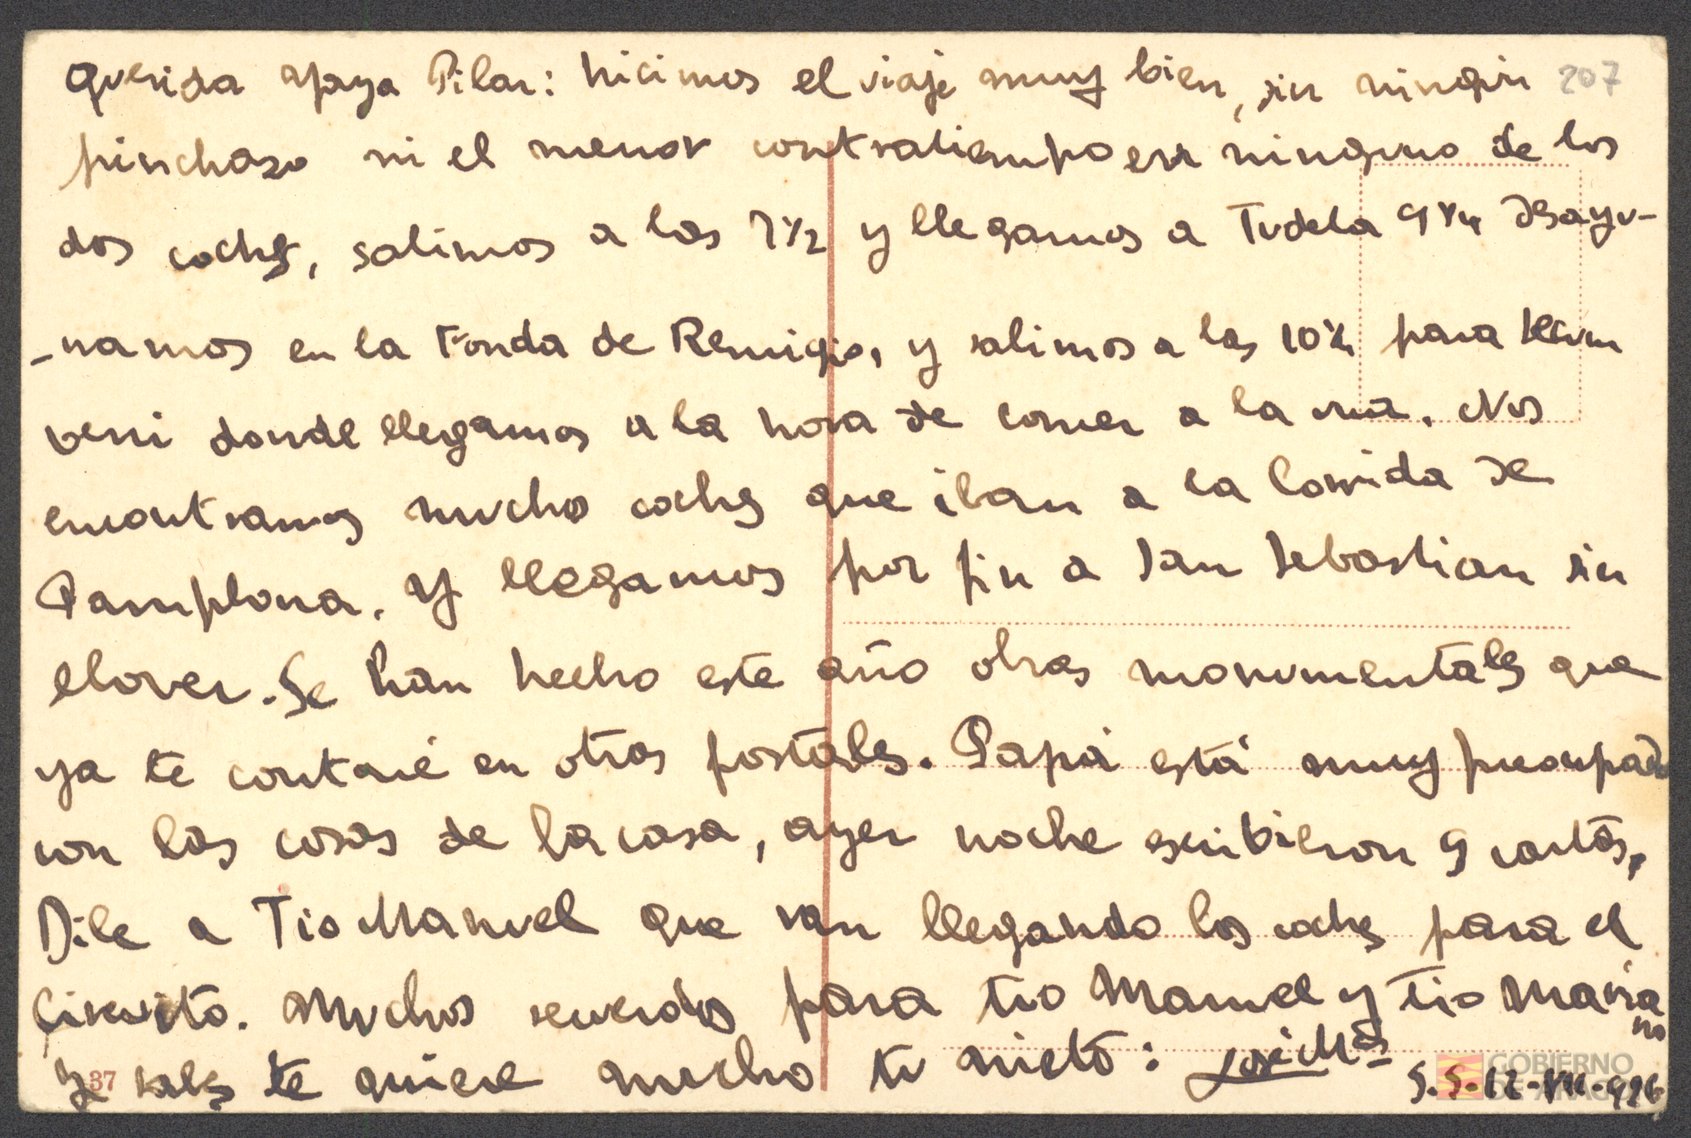 Querida Yaya Pilar: hicimos el viaje muy bien, sin ningún 207
pinchazo ni el menor contratiempo en ninguno de los
dos coches, salimos a las 7½ y llegamos a Tudela 9¼ desayu-
-namos en la Fonda de Remigio, y salimos a las 10¼ para
donde llegamos a la hora de comer a la una. Nos
encontramos muchos coches que iban a la Corrida de
Pamplona. Y llegamos por fin a San Sebastian sin
llover. Se han hecho este año obras monumentales que
ya te contaré en otras postales. Papá está muy preocupado
con las cosas de la casa, ayer noche escribieron 9 cartas,
Dile a Tio Manuel que van llegando los coches para el
Circuito. Muchos recuerdos para tio Manuel y Tio Maria
no
37 te quiere mucho tu nieto: José Mª
S.S-12-VII-926
GOBIERNO
DE ARAGON